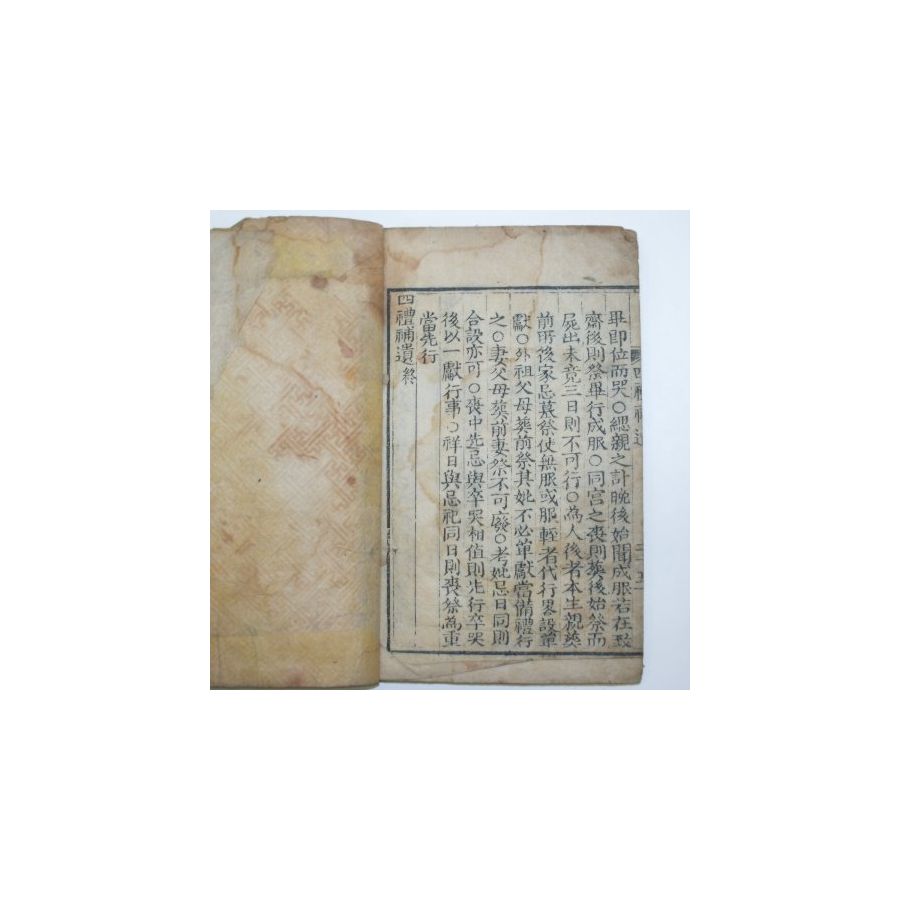 畢即位而哭○緦親之訃晚後始聞成服若在致
齋後則祭畢行成服○同宮之喪則葬後始祭而
屍出未竟三日則不可行○為人後者本生親葬
前所後家忌墓祭使無服或服輕者代行畧設單
獻○外祖父母葬前祭其妣不必單獻當備禮行
之○妻父母葬前妻祭不可廢○考妣忌日同則
合設亦可○喪中先忌與卒哭相值則先行卒哭
後以一獻行事○祥日與忌祀同日則喪祭為重
當先行
四禮補遺終